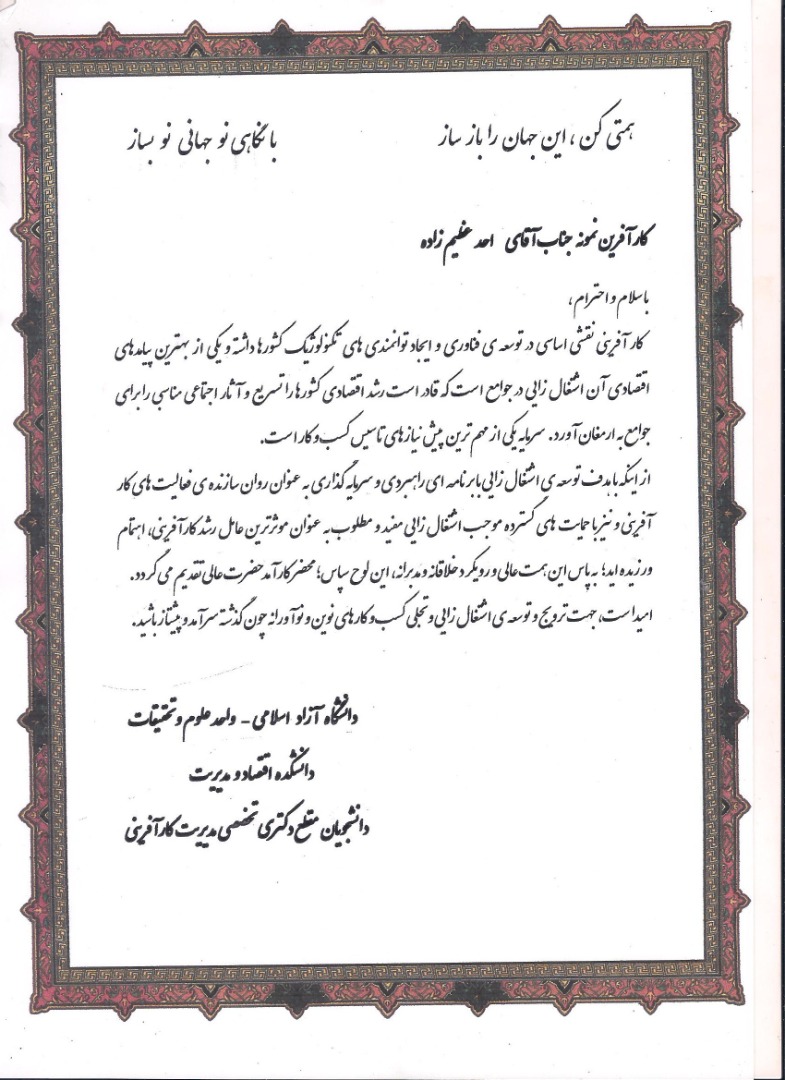 همتی کن ، این جهان را باز ساز با نگاهی نو جهانی نو بساز
کارآفرین نمونه جناب آقای احد عظیم زاده
با سلام و احترام ،
کار آفرینی نقشی اساسی در توسعه ی فناوری و ایجاد توانمندی های تکنولوژیک کشورها داشته و یکی از بهترین پیامدهای
اقتصادی آن اشتغال زایی در جوامع است که قادر است رشد اقتصادی کشورها را تسریع و آثار اجتماعی مناسبی را برای
جوامع به ارمغان آورد. سرمایه یکی از مهم ترین پیش نیازهای تاسیس کسب و کار است.
از اینکه با هدف توسعه ی اشتغال زایی با برنامه ای راهبردی و سرمایه گذاری به عنوان روان سازنده ی فعالیت های کار
آفرینی و نیز با حمایت های گسترده موجب اشتغال زایی مفید و مطلوب به عنوان موثرترین عامل رشد کارآفرینی، اهتمام
ورزیده اید؛ به پاس این همت عالی و رویکرد خلاقانه و مدبرانه، این لوح سپاس؛ محضر کارآمد حضرت عالی تقدیم می گردد.
امید است، جهت ترویج و توسعه ی اشتغال زایی و تجلی کسب و کارهای نوین و نوآورانه چون گذشته سرآمد و پیشتاز باشید.
دانشگاه آزاد اسلامی - واحد علوم و تحقیقات
دانشکده اقتصاد و مدیریت
دانشجویان مقطع دکتری تخصصی مدیریت کارآفرینی